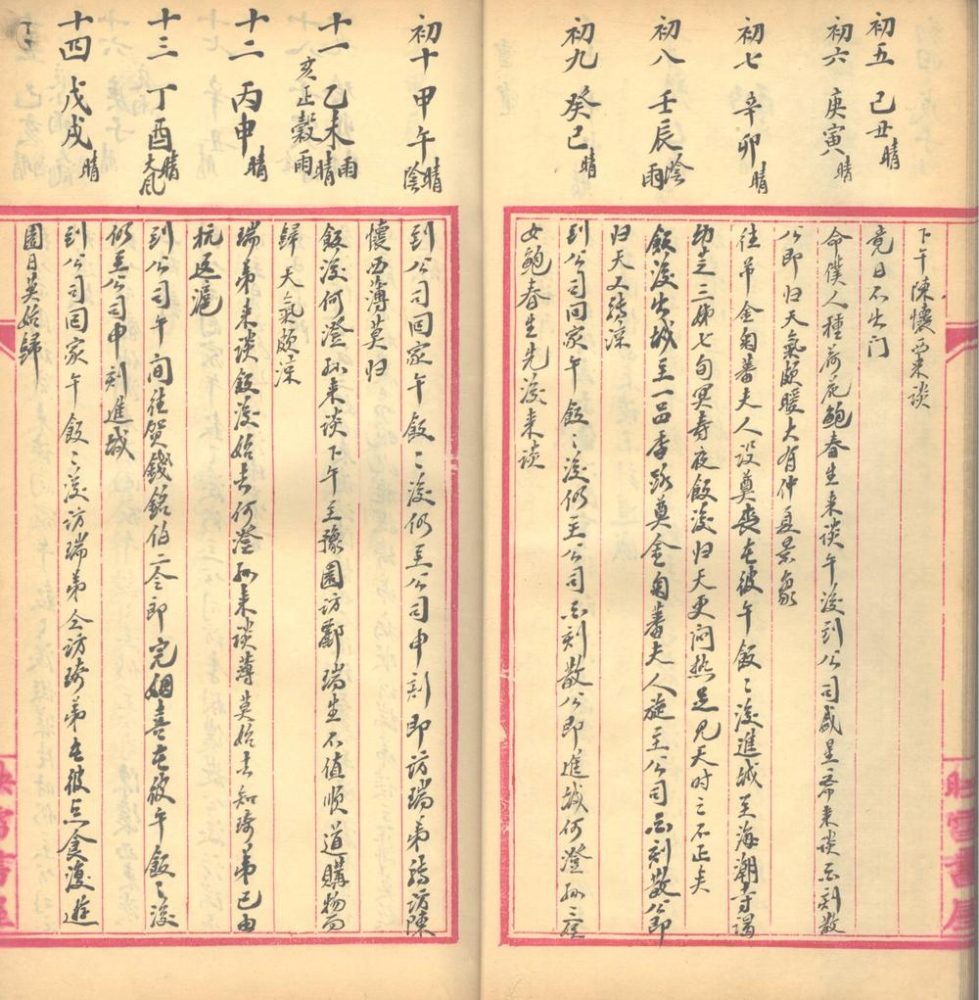 下午陳懷西來談
初五 己丑 晴
竟日不出门
初六 庚寅 晴
命僕人種荷花鮑春生來談午後到公司戚星齋來談酉刻散
公即归天氣頗暖大有仲夏景象
初七 辛卯 晴
往吊金菊蕃夫人設奠喪在彼午飯〻後進城至海潮寺謁
幼芝三姊七旬冥寿夜飯後归天更闷热足見天时之不正矣
初八 壬辰 陰雨
飯後出城至一品香路奠金菊蕃夫人旋至公司酉刻散公即
归天又转凉
初九 癸巳 晴
到公司回家午飯〻後仍至公司酉刻散公即進城何澄孙三姪
女鮑春生先後来谈
初十 甲午 晴陰
到公司回家午飯〻後仍至公司申刻即訪瑞弟转訪陳
懷西薄莫归
十一 乙未 雨晴
亥正穀雨
飯後何澄孙来谈下午至豫園訪鄭瑞生不值順道購物而
歸天氣頗涼
十二 丙申 晴
瑞弟来談飯後始去何澄孙来谈薄莫始去知琦弟已由
杭返滬
十三 丁酉 晴大風
到公司午间往贺錢銘伯二令郎完姻喜在彼午飯〻後
仍至公司申刻進城
十四 戊戌 晴
到公司回家午飯〻後訪瑞弟仝訪琦弟在彼点食後遊
園日莫始歸